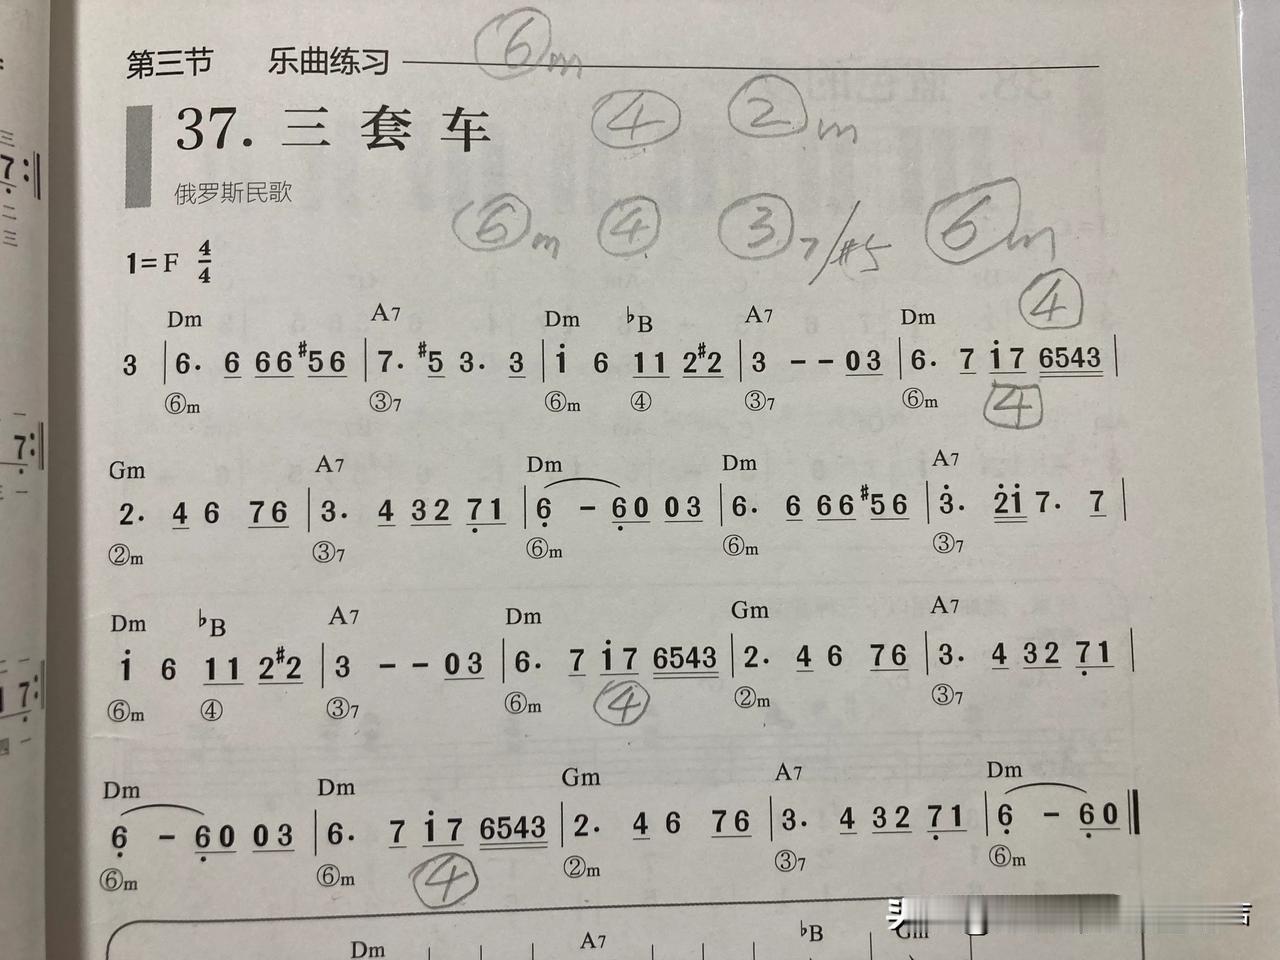 第三节 乐曲练习 ⑥m
37. 三套车 ④ ②m
俄罗斯民歌
⑥m ④ ③7/#5 ⑥m
1=F 4/4
④
Dm A7 Dm ♭B A7 Dm
3 | 6· 6 66#56 | 7· #5 3· 3 | i 6 11 2#2 | 3 - - 03 | 6· 7 i7 6543 |
⑥m ③7 ⑥m ④ ③7 ⑥m ④
Gm A7 Dm Dm A7
2· 4 6 76 | 3· 4 32 7̣1 | 6̣ - 6̣0 03 | 6· 6 66#56 | 3̇· 2̇i 7· 7 |
②m ③7 ⑥m ⑥m ③7
Dm ♭B A7 Dm Gm A7
i 6 11 2#2 | 3 - - 03 | 6· 7 i7 6543 | 2· 4 6 76 | 3· 4 32 7̣1 |
⑥m ④ ③7 ⑥m ④ ②m ③7
Dm Dm Gm A7 Dm
6̣ - 6̣0 03 | 6· 7 i7 6543 | 2· 4 6 76 | 3· 4 32 7̣1 | 6̣ - 6̣0 ‖
⑥m ⑥m ④ ②m ③7 ⑥m
Dm A7 ♭B Gm